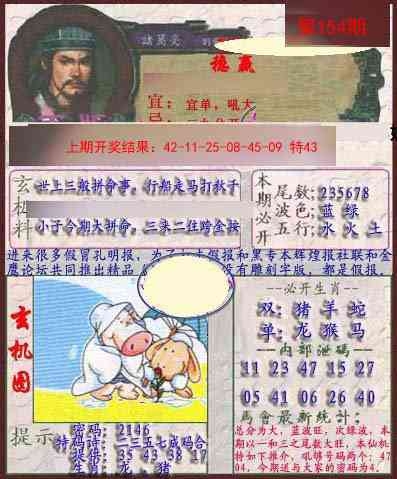 第154期
諸葛亮
穩贏
宜：宜单，吼大
上期开奖结果：42-11-25-08-45-09 特43
玄机料
世上三般拼命事，行船走马打秋千
小于今期大拼命，三来二往跨金按
本期必开
尾数：235678
波色：蓝 绿
五行：水 火 土
进来很多假冒孔明报，为了
假报和黑专本辉煌报社联和金
鹰论坛共同推出精品
没有雕刻字版，都是假报，
玄机图
必开生肖
双：猪 羊 蛇
单：龙 猴 马
内部泄码
11 23 47 15 27
05 41 06 26 40
馬會最新統計：
总分为大，蓝波旺，次绿波，本
期以一和三之尾数大旺，本仙机
特如下推介，吼够号码两个：47
04，今期送与大家的密码为4.
提示
密码：2146
特码诗：二三五七成码合
提供：35 43 38 17
生肖：龙、猪